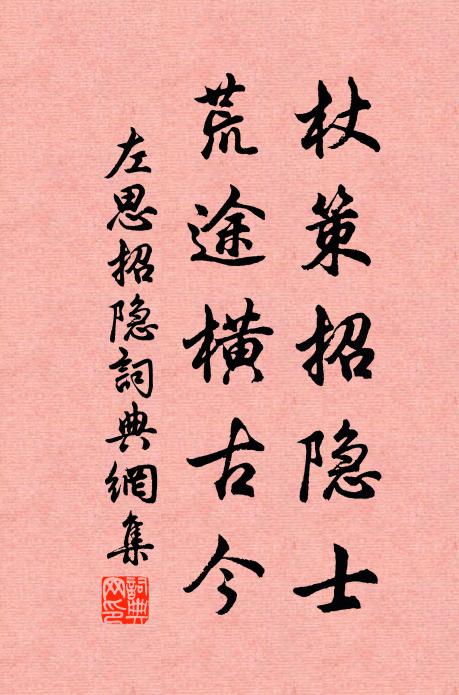 杖策招隐士
荒途横古今
左思招隐詞典網集
詞典
网印